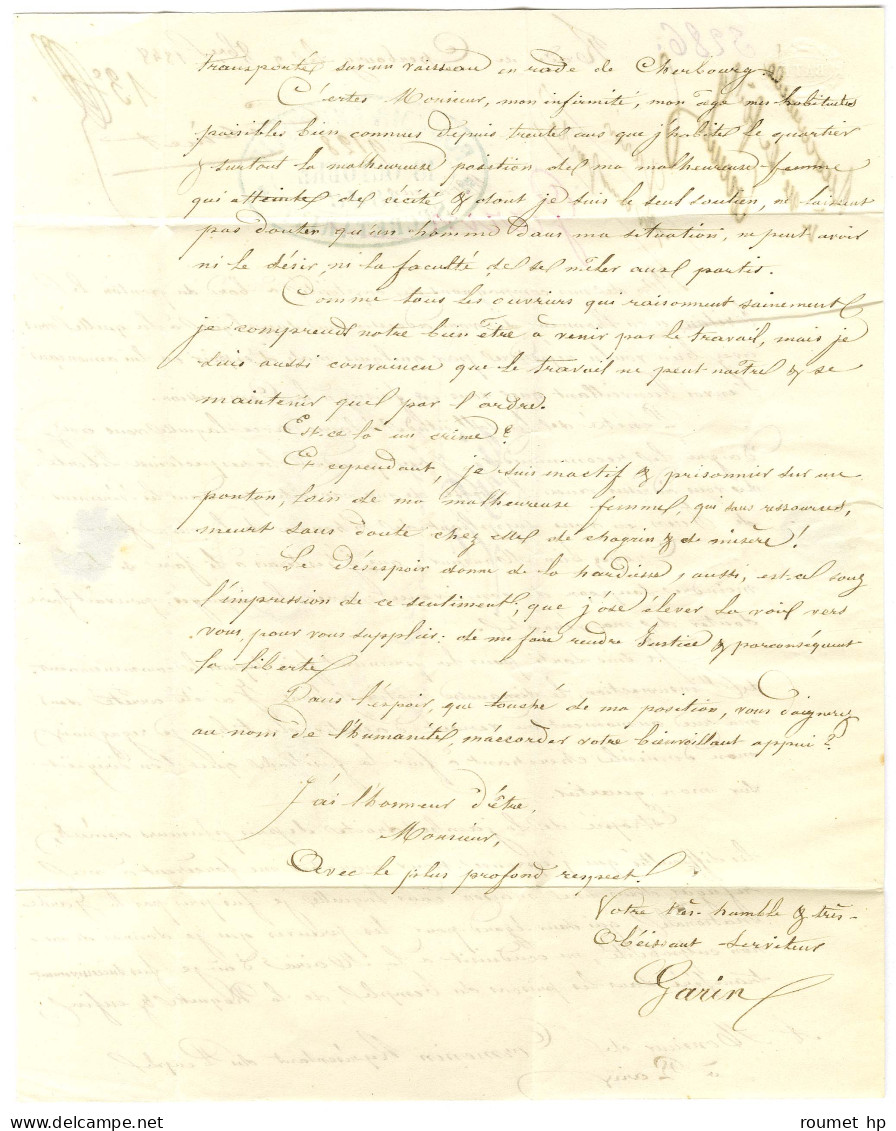 transporté sur un vaisseau en rade de Cherbourg.
Certes Monsieur, mon infirmité, mon âge mes habitudes
paisibles bien connues depuis trente ans que j'habite le quartier
& surtout la malheureuse position de ma malheureuse femme
qui atteinte de cécité & dont je suis le seul soutien, ne laissent
pas douter qu'un homme dans ma situation, ne peut avoir
ni le désir, ni la faculté de se mêler aux partis.
Comme tous les ouvriers qui raisonnent sainement
je comprends notre bien être à venir par le travail, mais je
suis aussi convaincu que le travail ne peut naître & se
maintenir que par l'ordre.
Est-ce là un crime?
Et cependant, je suis inactif & prisonnier sur un
ponton, loin de ma malheureuse femme, qui sans ressources,
meurt sans doute chez elle de chagrin & de misère!
Le désespoir donne de la hardiesse, aussi, est-ce sous
l'impression de ce sentiment, que j'ose élever la voix vers
vous pour vous supplier de me faire rendre Justice & par conséquent
la liberté.
Dans l'espoir, que touché de ma position, vous daignerez
au nom de l'humanité, m'accorder votre bienveillant appui?
J'ai l'honneur d'être,
Monsieur,
Avec le plus profond respect.
Votre très-humble & très-
Obéissant serviteur
Garin
roumet hp
delcampe.net